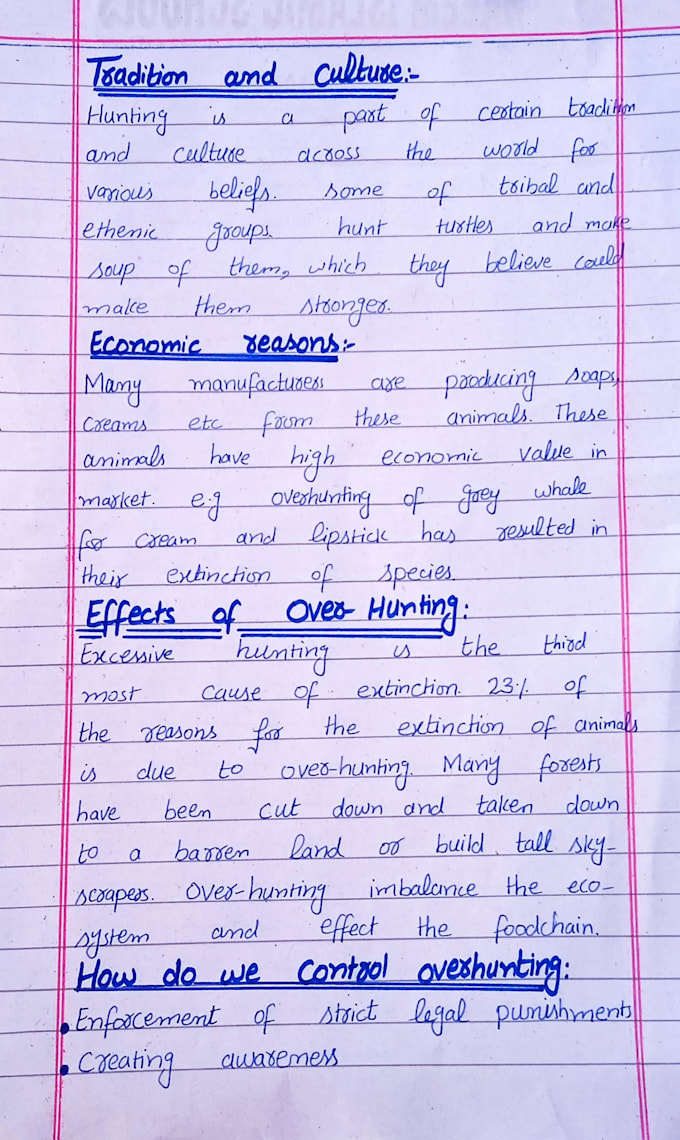 Tradition and Culture:-
Hunting is a part of certain tradition
and culture across the world for
various beliefs. some of tribal and
ethenic groups. hunt turtles and make
soup of them, which they believe could
make them stronger.
Economic reasons:-
Many manufacturers are producing soaps,
creams etc from these animals. These
animals have high economic value in
market. e.g overhunting of grey whale
for cream and lipstick has resulted in
their extinction of species.
Effects of Over-Hunting:
Excessive hunting is the third
most cause of extinction. 23% of
the reasons for the extinction of animals
is due to over-hunting. Many forests
have been cut down and taken down
to a barren land or build. tall sky-
scrapers. Over-hunting imbalance the eco-
system and effect the foodchain.
How do we control overhunting:
• Enforcement of strict legal punishments
• Creating awareness